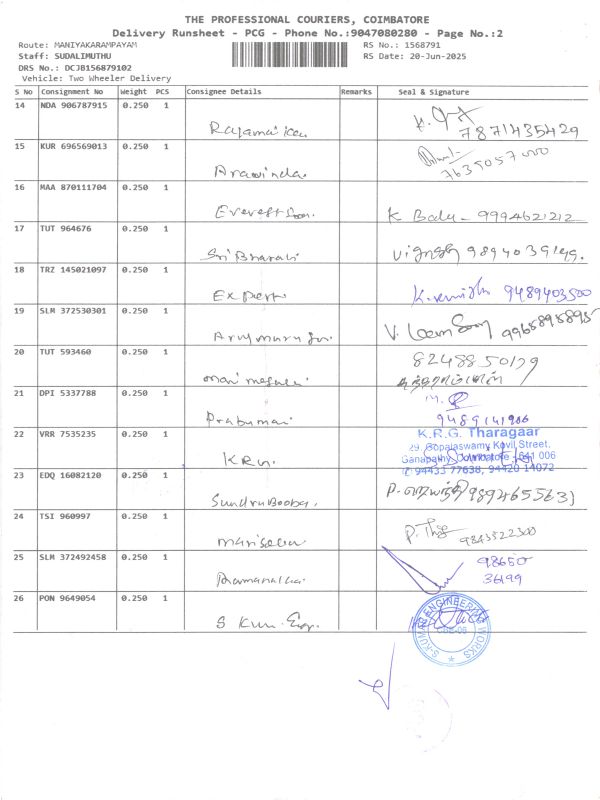 THE PROFESSIONAL COURIERS, COIMBATORE
Delivery Runsheet - PCG - Phone No.:9047080280 - Page No.:2
Route: MANIYAKARAMPAYAM RS No.: 1568791
Staff: SUDALIMUTHU RS Date: 20-Jun-2025
DRS No.: DCJB156879102
Vehicle: Two Wheeler Delivery
S No Consignment No Weight PCS Consignee Details Remarks Seal & Signature
14 NDA 906787915 0.250 1
7871435429
15 KUR 696569013 0.250 1
Aravinda. 7635057000
16 MAA 870111704 0.250 1
Everest K Balu - 9994621212
17 TUT 964676 0.250 1
Sri Bharati Vignesh
18 TRZ 145021097 0.250 1
Expert 9489403500
19 SLM 372530301 0.250 1
V. 9965895895
20 TUT 593460 0.250 1
8248850179
21 DPI 5337788 0.250 1
9489141906
22 VRR 7535235 0.250 1
K.R.G. Tharagaar
29, Gopalaswamy Kovil Street,
Ganapathy, Coimbatore - 641 006
✆ 94433 77638, 94420 14072
23 EDQ 16082120 0.250 1
24 TSI 960997 0.250 1
9843522300
25 SLM 372492458 0.250 1
98650
36199
26 PON 9649054 0.250 1
S Kum. Eng.
S-KUMAR ENGINEERING WORKS
CBE-06